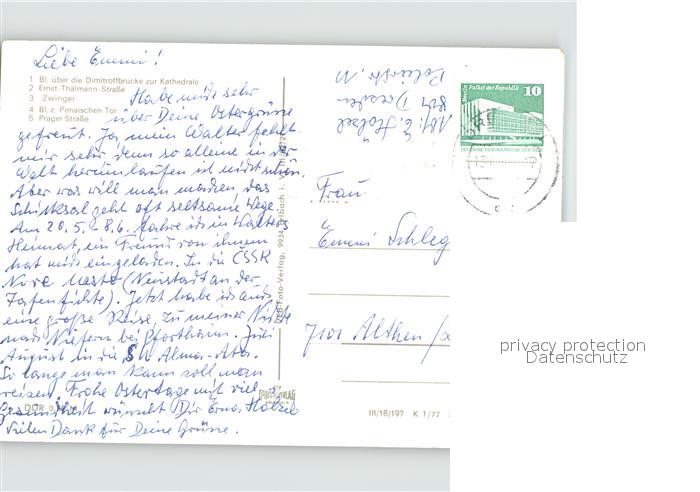 Liebe Emmi!
1 Bl. über die Dimitroffbrücke zur Kathedrale
2 Ernst-Thälmann-Straße
3 Zwinger
4 Bl. z. Pirnaischen Tor
5 Prager Straße
Habe mich sehr
über Deine Ostergrüsse
gefreut. Ja mein Walter fehlt
mir sehr, denn so alleine in der
Welt herumlaufen ist nicht schön.
Aber was will man machen das
Schicksal geht oft seltsame Wege.
Am 20.5. - 8.6. fahre ich in Walters
Heimat, ein Freund von ihnen
hat mich eingeladen. In die ČSSR
Nove Mesto (Neustadt an der
Tafelfichte). Jetzt habe ich auch
eine große Reise, zu meiner Nichte
nach Niefern bei Pforzheim. Juli
August in die Alma-Ata.
So lange man kann soll man
reisen. Frohe Ostertage mit viel
Gesundheit wünscht Dir Erna Hölzel
Vielen Dank für Deine Grüsse.
DDR
VEB Foto-Verlag, 9934 Erlbach i. V.
Abs. E. Hölzel
Dresden
Berlin Palast der Republik
10
DEUTSCHE DEMOKRATISCHE REPUBLIK
Frau
Emmi Schleg
7101 Althen
III/18/197 K 1/77
privacy protection
Datenschutz